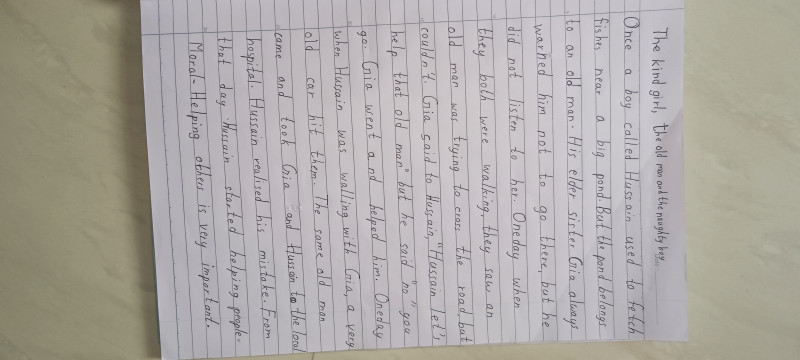 The kind girl, the old man and the naughty boy
Once a boy called Hussain used to fetch
fishes near a big pond. But the pond belongs
to an old man. His elder sister Gia always
warned him not to go there, but he
did not listen to her. Oneday when
they both were walking, they saw an
old man was trying to cross the road, but
couldn't. Gia said to Hussain, "Hussain let's
help that old man" but he said "no" you
go. Gia went and helped him. Oneday
when Hussain was walling with Gia, a very
old car hit them. The same old man
came and took Gia and Hussain to the local
hospital. Hussain realised his mistake. From
that day. Hussain started helping people.
Moral. Helping others is very important.